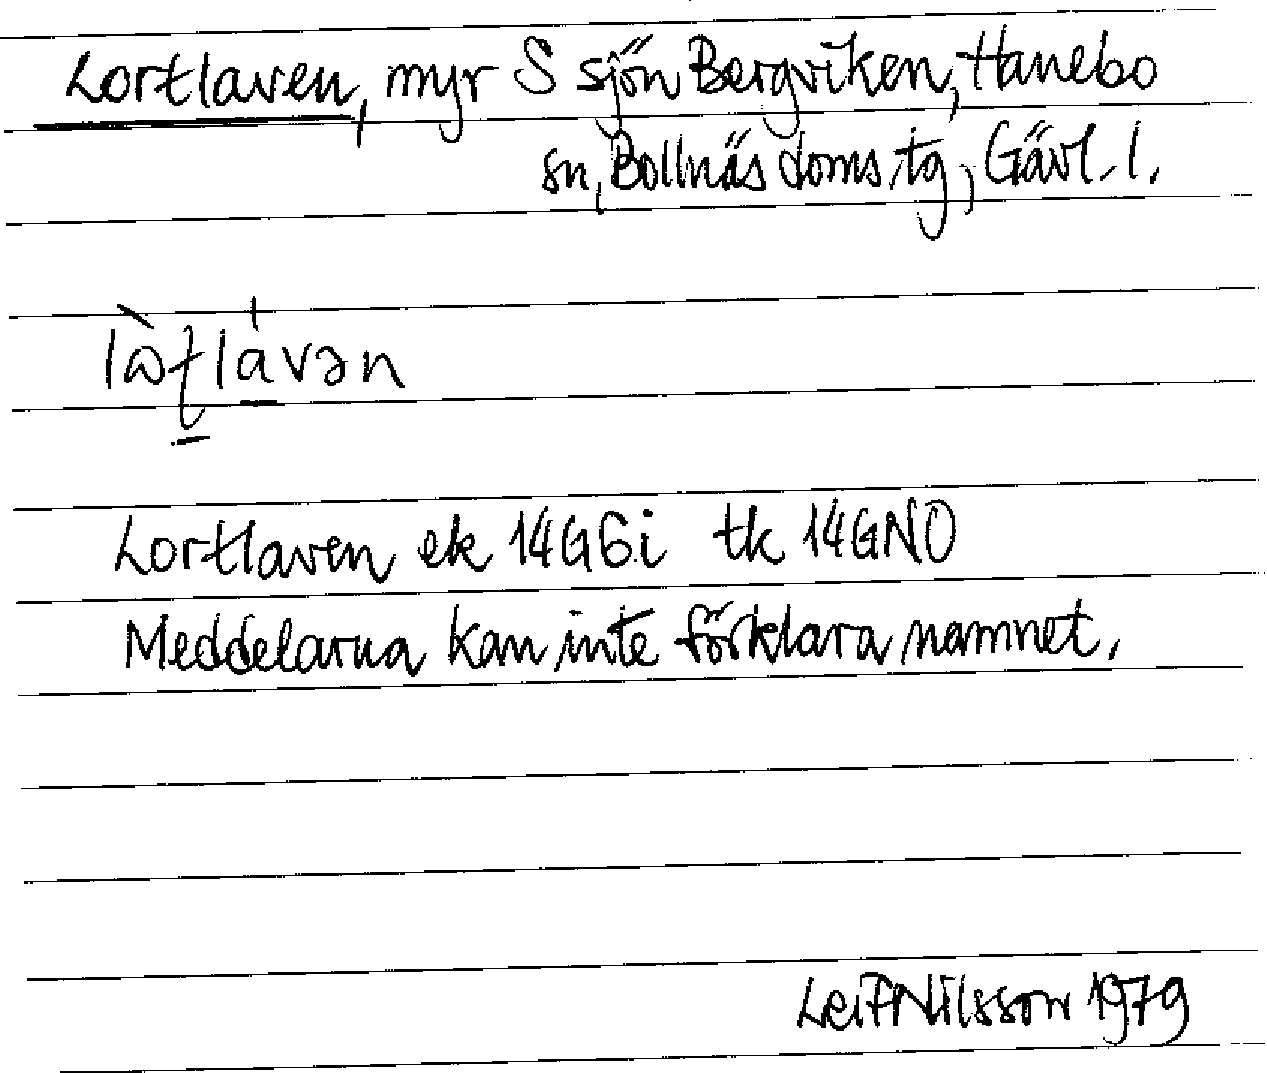 Lortlaven, myr S sjön Bergviken, Hanebo
sn, Bollnäs doms. tg, Gävl. l.
lòƫlávən
Lortlaven ek 14G6i tk 14GNO
Meddelarna kan inte förklara namnet.
Leif Nilsson 1979